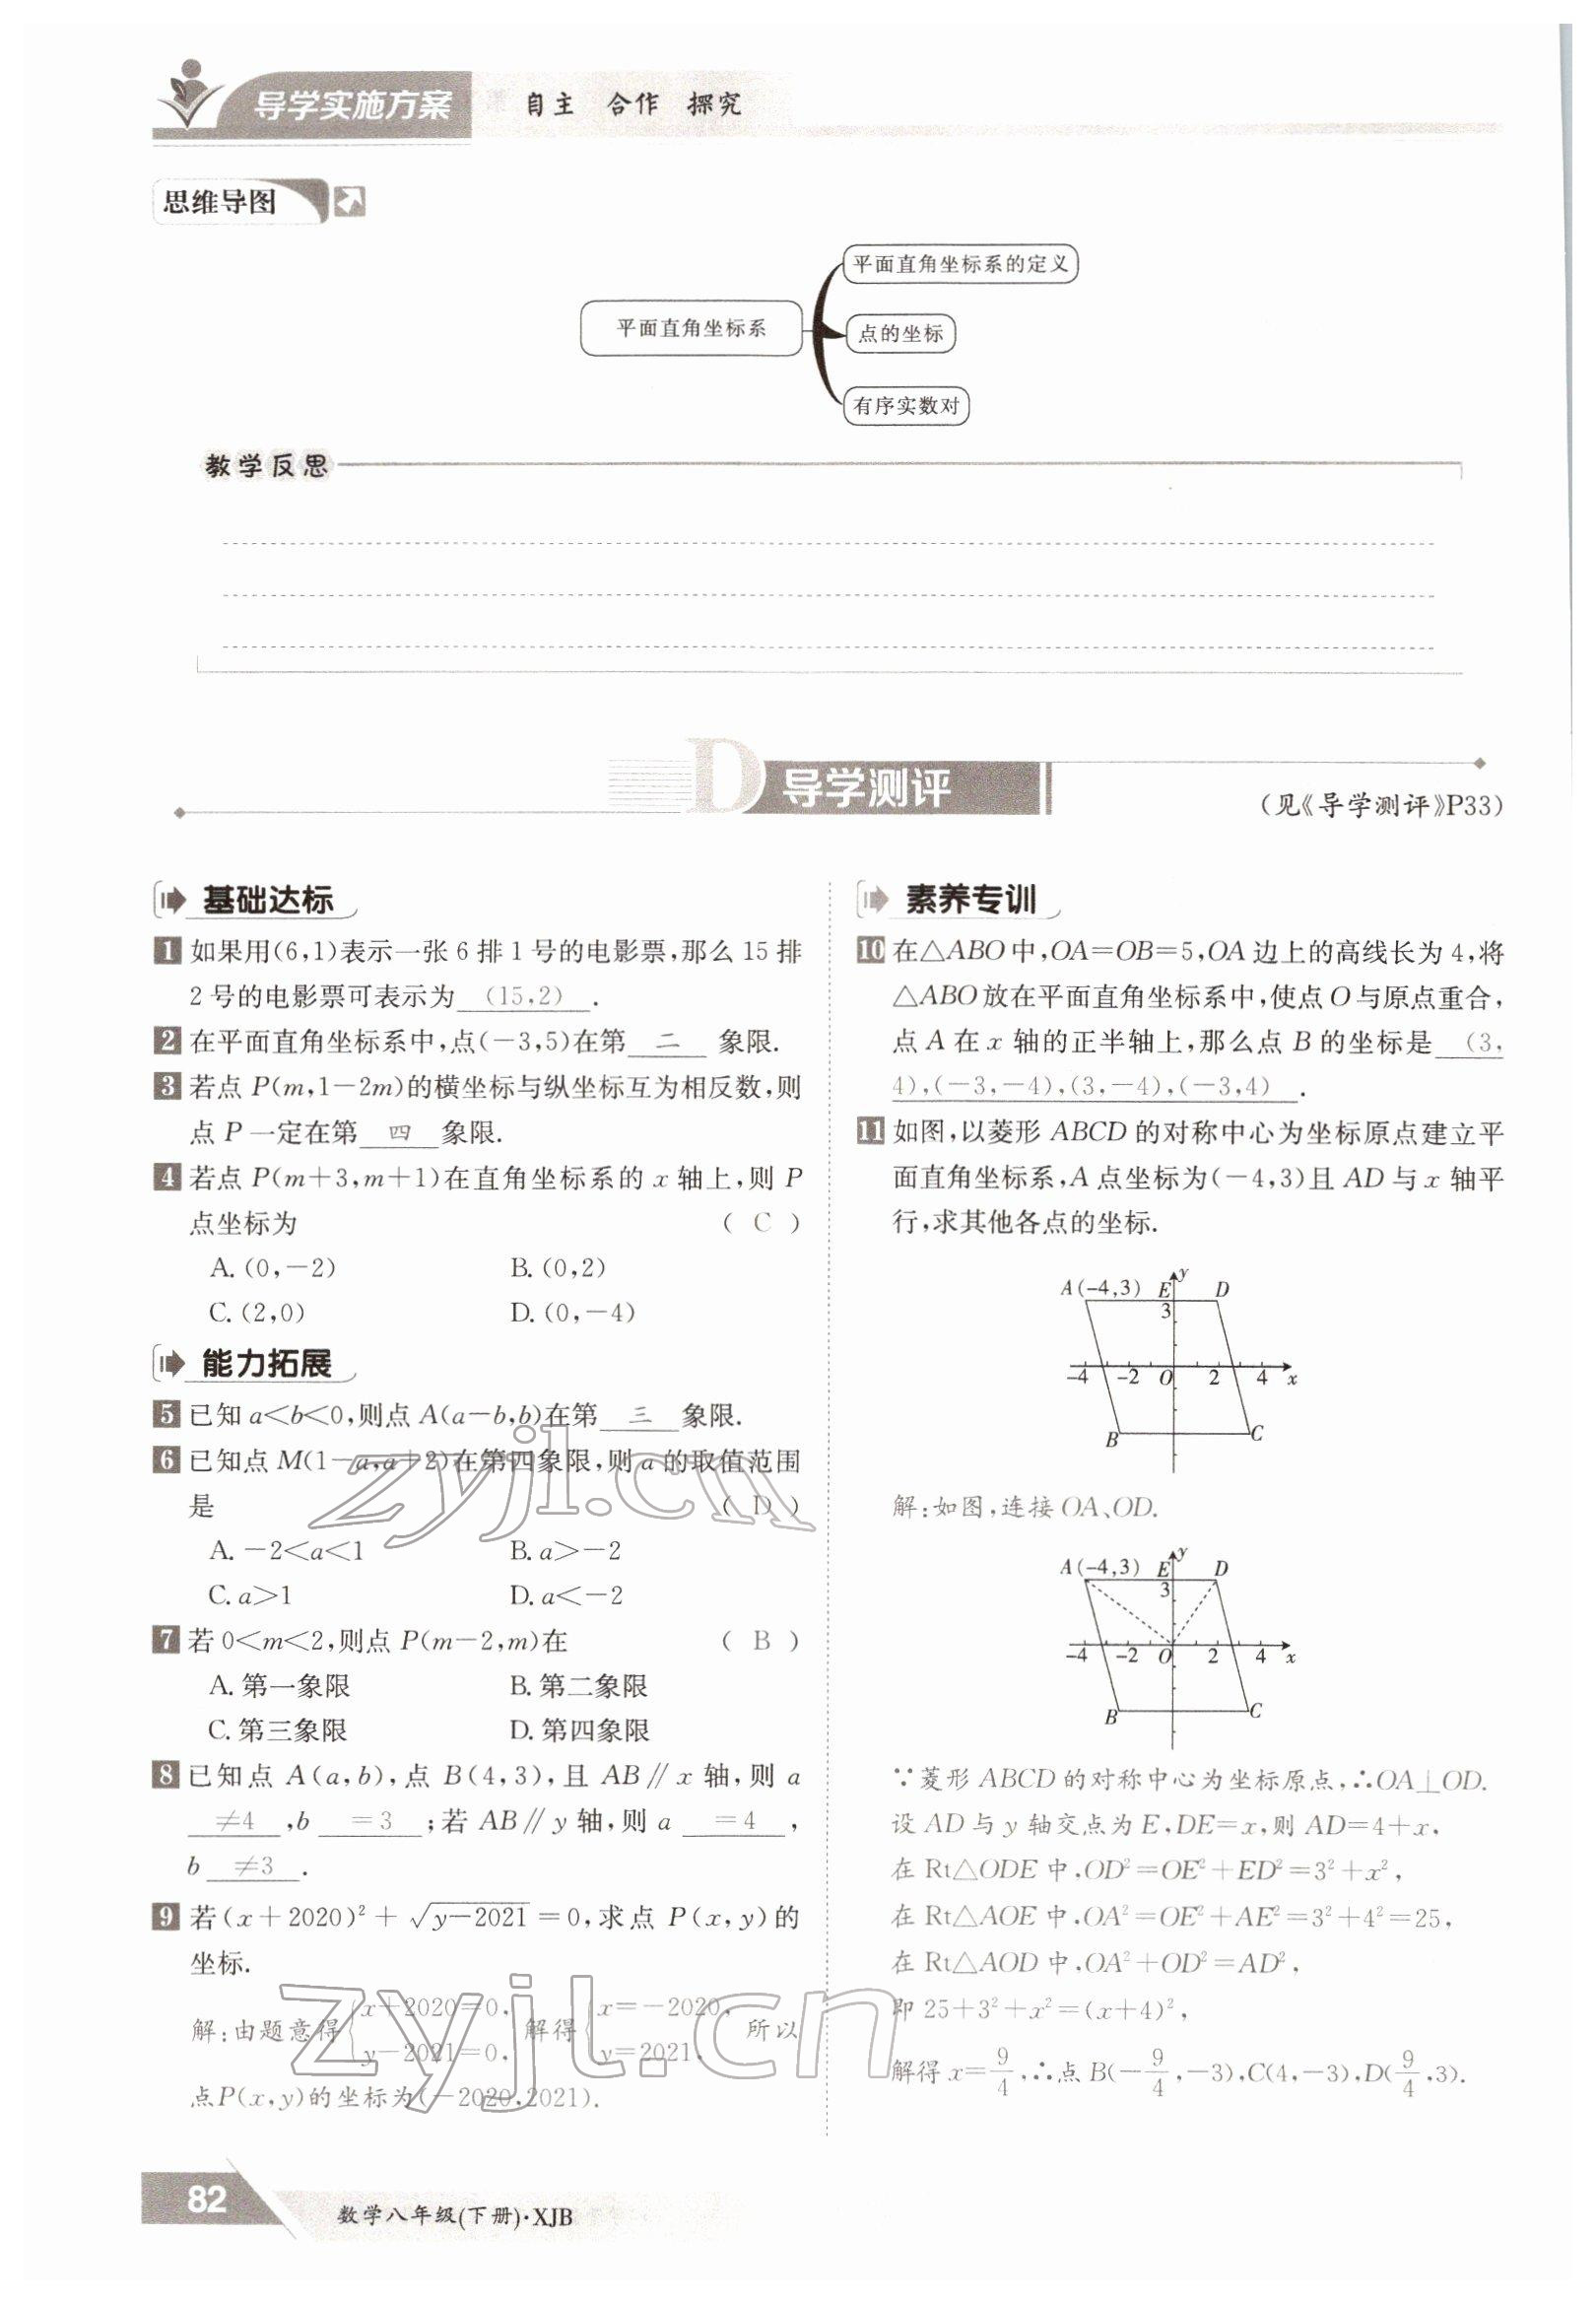 导学实施方案 自主 合作 探究
思维导图
平面直角坐标系的定义
平面直角坐标系
点的坐标
有序实数对
教学反思
D 导学测评
(见《导学测评》P33)
基础达标
1 如果用(6,1)表示一张 6 排 1 号的电影票,那么 15 排
2 号的电影票可表示为 (15,2) .
2 在平面直角坐标系中,点(-3,5)在第 二 象限.
3 若点 P(m,1-2m)的横坐标与纵坐标互为相反数,则
点 P 一定在第 四 象限.
4 若点 P(m+3,m+1)在直角坐标系的 x 轴上,则 P
点坐标为 ( C )
A. (0,-2) B. (0,2)
C. (2,0) D. (0,-4)
能力拓展
5 已知 a<b<0,则点 A(a-b,b)在第 三 象限.
6 已知点 M(1-a,a+2)在第四象限,则 a 的取值范围
是 ( D )
A. -2<a<1 B. a>-2
C. a>1 D. a<-2
7 若 0<m<2,则点 P(m-2,m)在 ( B )
A. 第一象限 B. 第二象限
C. 第三象限 D. 第四象限
8 已知点 A(a,b),点 B(4,3),且 AB∥x 轴,则 a
≠4 ,b =3 ;若 AB∥y 轴,则 a =4 ,
b ≠3 .
9 若(x+2020)²+√(y-2021)=0,求点 P(x,y)的
坐标.
解:由题意得{x+2020=0, y-2021=0, 解得{x=-2020, y=2021, 所以
点P(x,y)的坐标为(-2020,2021).
素养专训
10 在△ABO中,OA=OB=5,OA 边上的高线长为 4,将
△ABO放在平面直角坐标系中,使点 O 与原点重合,
点 A 在 x 轴的正半轴上,那么点 B 的坐标是 (3,
4),(-3,-4),(3,-4),(-3,4) .
11 如图,以菱形 ABCD 的对称中心为坐标原点建立平
面直角坐标系,A 点坐标为(-4,3)且 AD 与 x 轴平
行,求其他各点的坐标.
A(-4,3) E y D
3
-4 -2 O 2 4 x
B C
解:如图,连接 OA、OD.
A(-4,3) E y D
3
-4 -2 O 2 4 x
B C
∵菱形 ABCD 的对称中心为坐标原点,∴OA⊥OD.
设 AD 与 y 轴交点为 E,DE=x,则 AD=4+x,
在 Rt△ODE 中,OD²=OE²+ED²=3²+x²,
在 Rt△AOE 中,OA²=OE²+AE²=3²+4²=25,
在 Rt△AOD 中,OA²+OD²=AD²,
即 25+3²+x²=(x+4)²,
解得 x=9/4,∴点 B(-9/4,-3),C(4,-3),D(9/4,3).
zyjl.cn
zyjl.cn
82 数学八年级(下册)·XJB